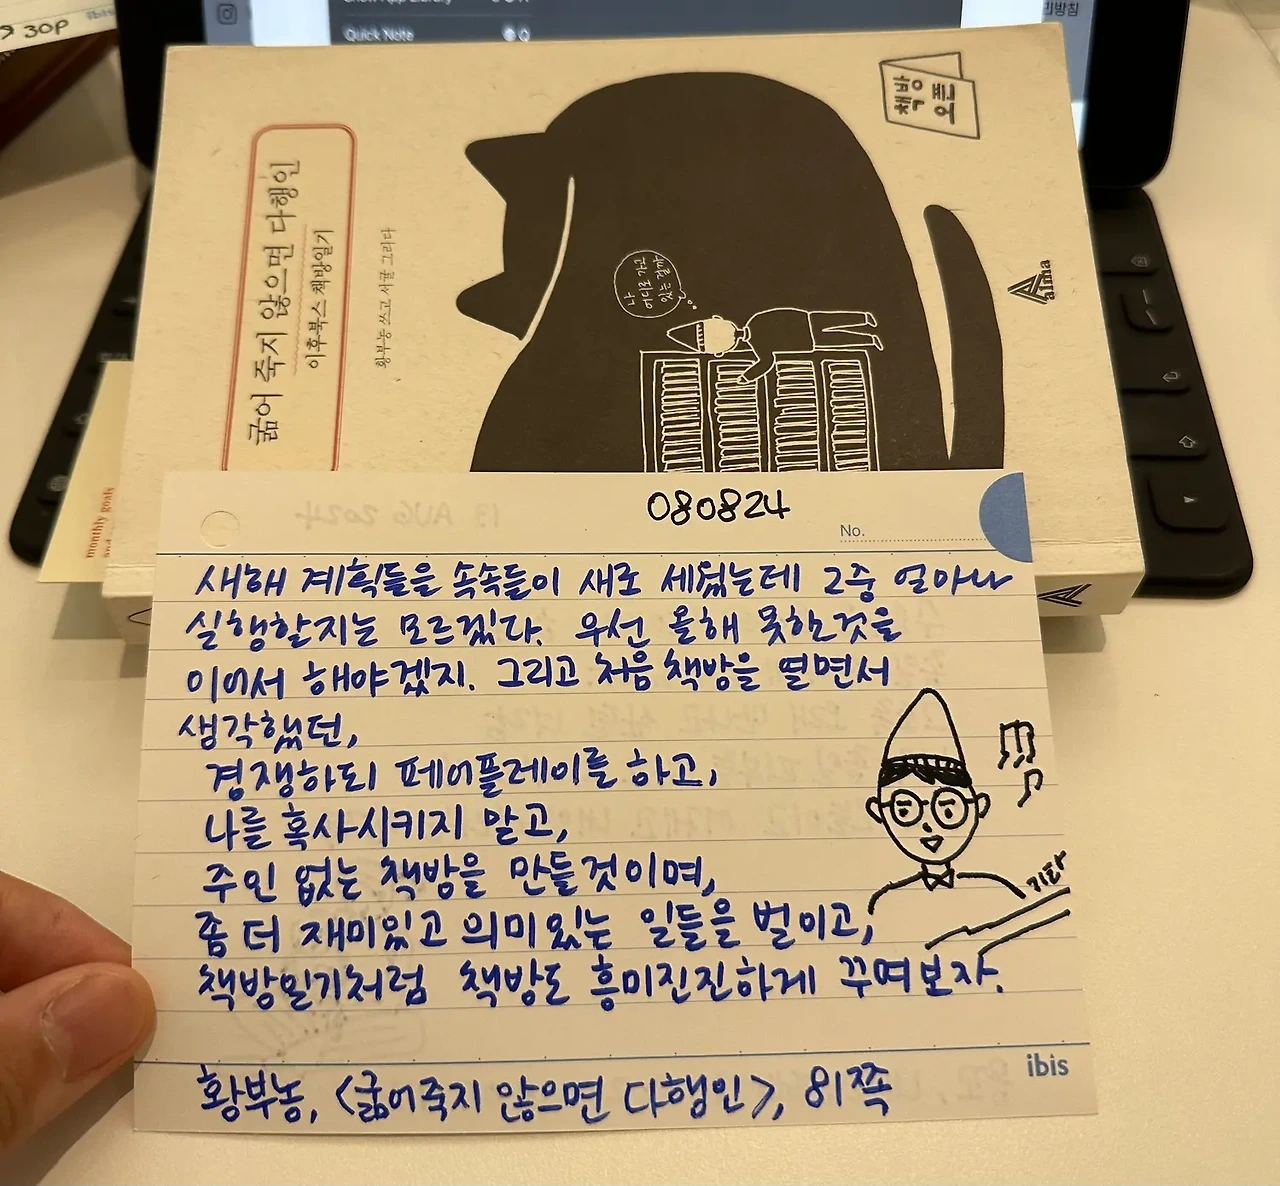 30P
ibis
Quick Note
책방
오픈
굶어 죽지 않으면 다행인
이후북스 책방일기
황부농 쓰고 서귤 그리다
나
어디로 가고
있는 걸까
alma
monthly goals
13 AUG 2024
080824
No.
새해 계획들을 속속들이 새로 세웠는데 그중 얼마나
실행할지는 모르겠다. 우선 올해 못한것을
이어서 해야겠지. 그리고 처음 책방을 열면서
생각했던,
경쟁하되 페어플레이를 하고,
나를 혹사시키지 말고,
주인 없는 책방을 만들것이며,
좀 더 재미있고 의미있는 일들을 벌이고,
책방일기처럼 책방도 흥미진진하게 꾸며보자.
기타
ibis
황부농, <굶어죽지 않으면 다행인>, 81쪽